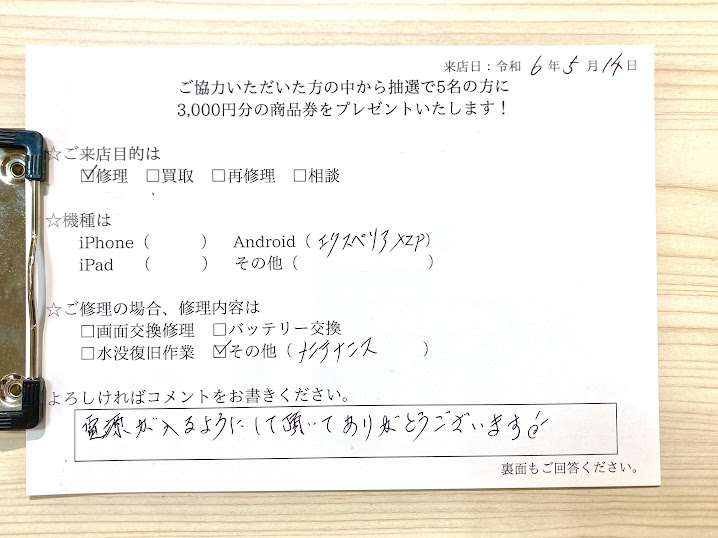 来店日：令和 6 年 5 月 14 日
ご協力いただいた方の中から抽選で5名の方に
3,000円分の商品券をプレゼントいたします！
☆ご来店目的は
☑修理 □買取 □再修理 □相談
☆機種は
iPhone（ ） Android（エクスペリア XZP）
iPad （ ） その他（ ）
☆ご修理の場合、修理内容は
□画面交換修理 □バッテリー交換
□水没復旧作業 ☑その他（メンテナンス ）
よろしければコメントをお書きください。
電源が入るようにして頂いてありがとうございます
裏面もご回答ください。